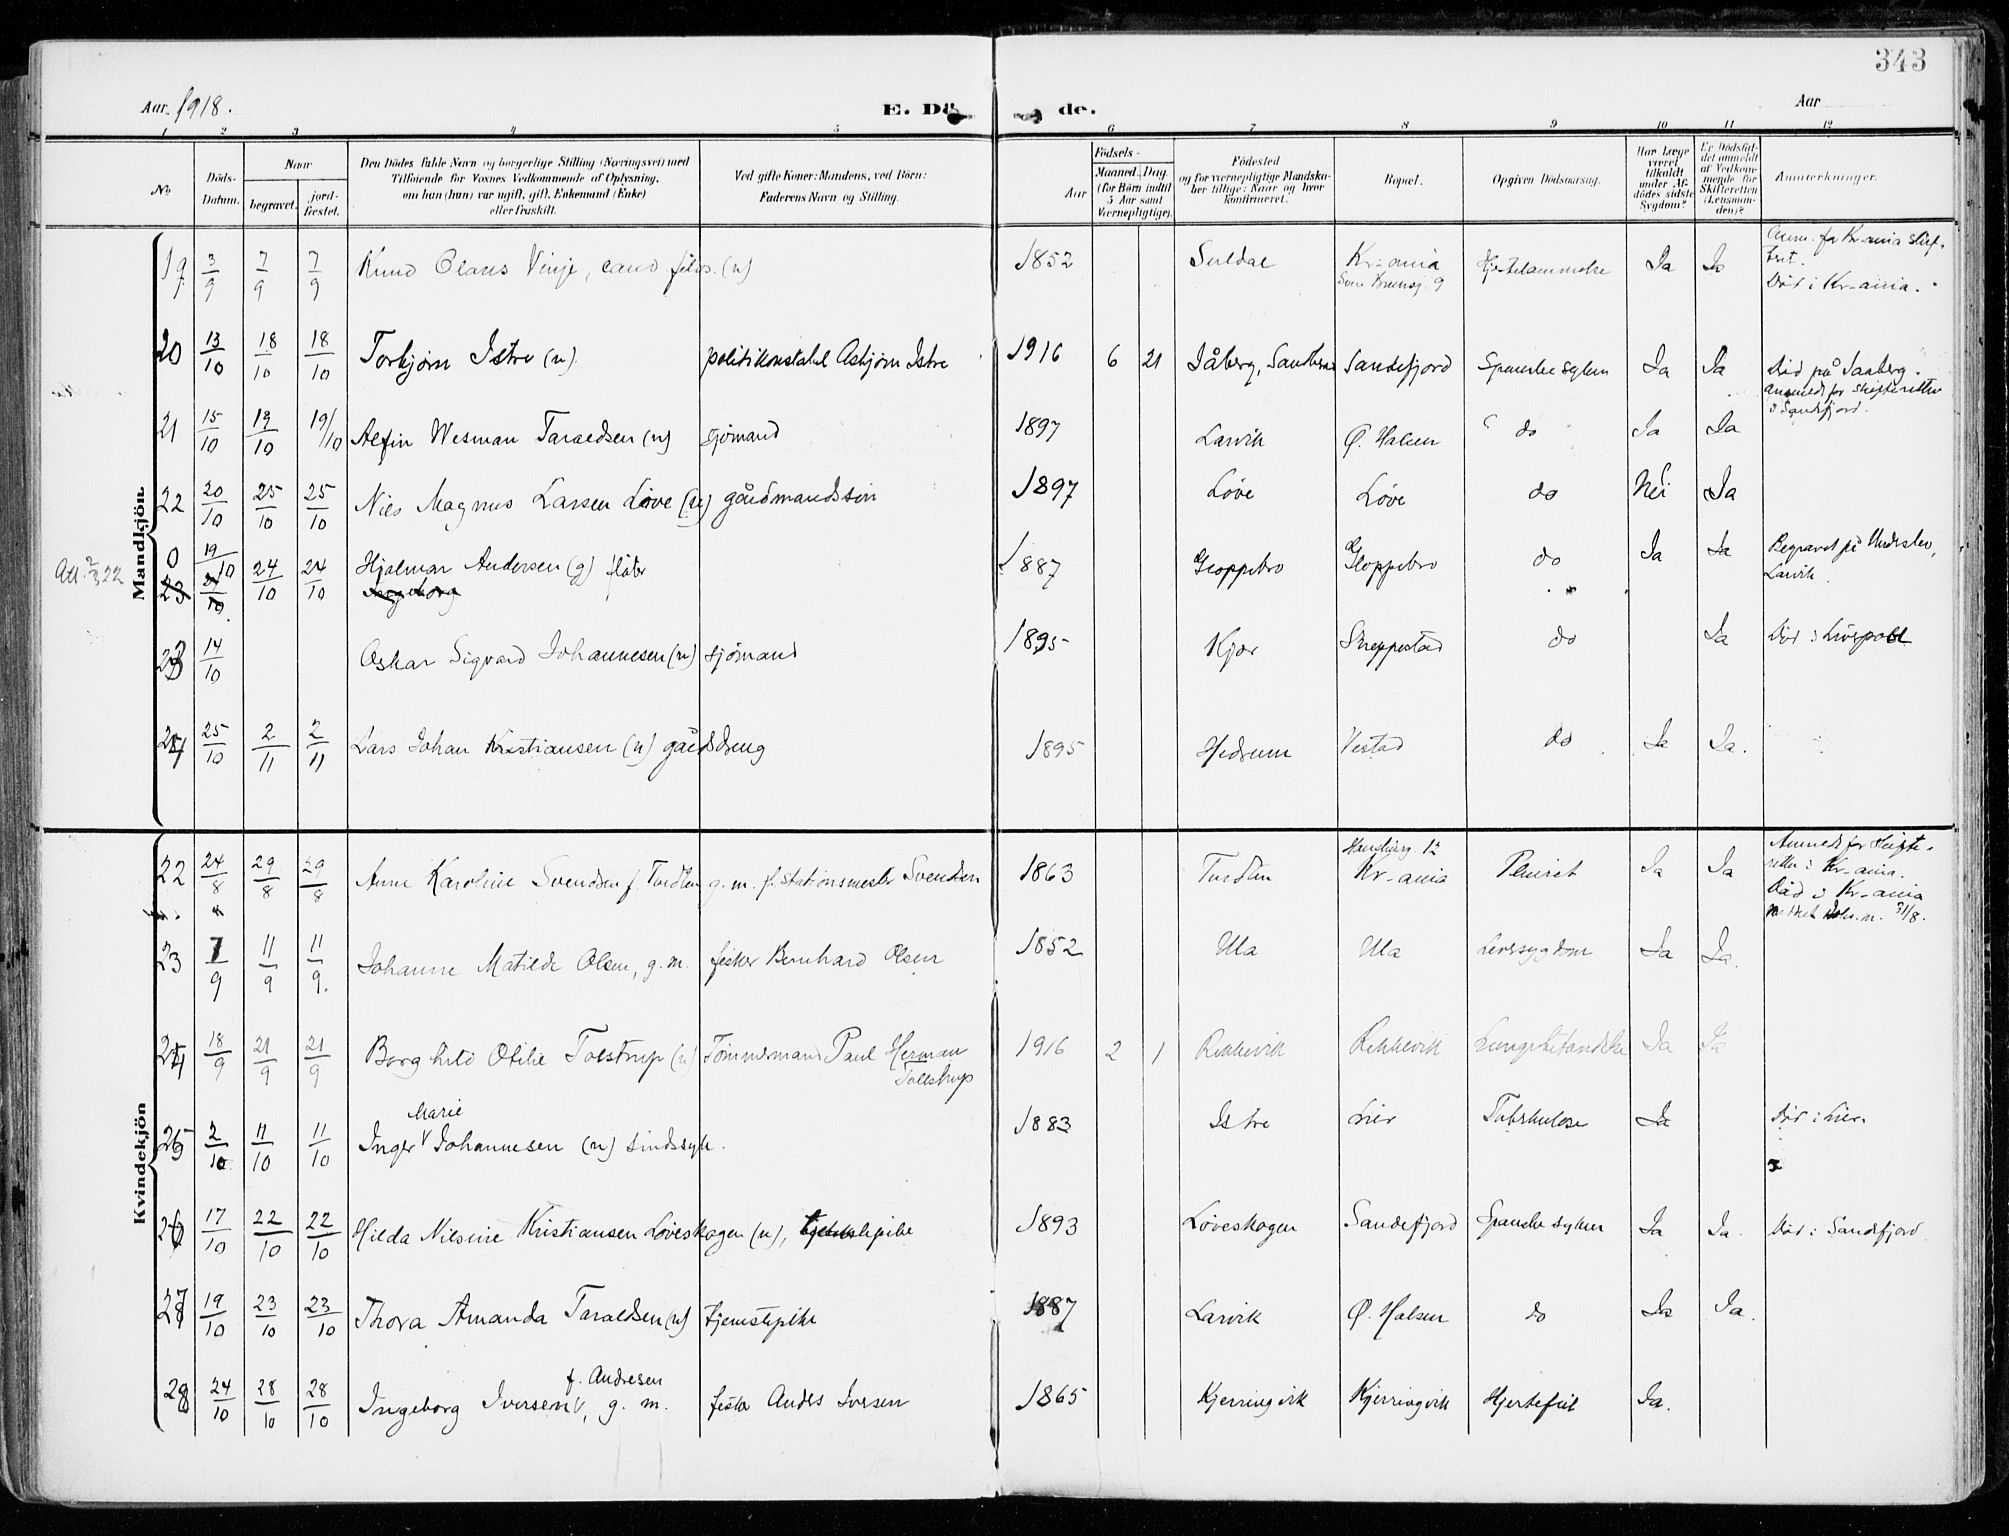 343
Aar 1918.
E. Dö de.
Aar
1 2 3 4 5 6 7 8 9 10 11 12
No
Döds-Datum.
Naar
begravet.
jord-fæstet.
Den Dödes fulde Navn og borgerlige Stilling (Næringsvei) med
Tilföiende for Voxnes Vedkommende af Oplysning,
om han (hun) var ugift, gift, Enkemand (Enke)
eller fraskilt.
Ved gifte Koner: Mandens, ved Börn:
Faderens Navn og Stilling.
Aar
Födsels-
Maaned. Dag.
(for Börn indtil
5 Aar samt
Værnepligtige).
Födested
og for værnepligtige Mandska-
ber tillige: Naar og hvor
konfirmeret.
Bopæl.
Opgiven Dödsaarsag.
Har Læge
været
tilkaldt
under Af-
dödes sidste
Sygdom?
Er Dödsfal-
det anmeldt
af Vedkom-
mende for
Skifteretten
(Lensman-
den)?
Anmærkninger.
Mandkjön.
19 3/9 7/9 7/9 Knud Claus Vinje, cand. filos. (u) 1852 Suldal Kr-ania Ja Ja
Død i Kr-ania.
20 13/10 18/10 18/10 Torbjørn Istre (u) politikonstabel Asbjørn Istre 1916 6 21 Jåberg, Sandherad Sandefjord Spanske syken Ja Ja Død på Jaaberg.
anmeldt for skifteretten
i Sandefjord.
21 15/10 19/10 19/10 Alfin Wesman Taraldsen (u) sjömand 1897 Larvik Ø. Halsen do Ja Ja
22 20/10 25/10 25/10 Nils Magnus Larsen Løve (u) gårdmandssön 1897 Løve Løve do Nei Ja
Att. 2/3 22
0 19/10 24/10 24/10 Hjalmar Andersen (g) flåter 1887 Gloppebro Gloppebro do Ja Ja Begravet på Undersbo,
Larvik.
23 Ingeborg
23 14/10 Oskar Sigvard Johannesen (u) sjömand 1895 Kjær Skreppestad do Ja Død i Liverpool
24 25/10 2/11 2/11 Lars Johan Kristiansen (u) gårdsdreng 1895 Hedrum Vestad do Ja Ja.
Kvindekjön
22 24/8 29/8 29/8 Anne Karoline Svendsen f. Tordtlin g. m. f. stationsmester Svendsen 1863 12 Kr-ania Pleurit Ja Ja Anmeldt for skifte-
retten i Kr-ania.
Død i Kr-ania
31/8.
23 7/9 11/9 11/9. Johanne Matilde Olsen, g. m. fisker Bernhard Olsen 1852 Ula Ula Leversygdom Ja Ja.
24 18/9 21/9 21/9 Borghild Otilie Tolstrup (u) Tömmermand Paul Herman
Tollstrup 1916 2 1 Rekkevik Rekkevik Lungebetændelse Ja Ja
Marie
25 2/10 11/10 11/10 Inger V Johannesen (u) sindssyk. 1883 Istre Lier Tuberkulose Ja Død i Lier.
26 17/10 22/10 22/10 Hilda Nilsine Kristiansen Løveskogen (u), tjenestepike 1893 Løveskogen Sandefjord Spanske syken Ja Ja. Død i Sandefjord.
27 19/10 23/10 23/10 Thora Amanda Taraldsen (u) tjenestepike 1887 Larvik Ø. Halsen do Ja Ja.
f. Andresen
28 24/10 28/10 28/10 Ingeborg Iversen V, g. m. fisker Anders Iversen 1865 Kjerringvik Kjerringvik Hjertefeil Ja.